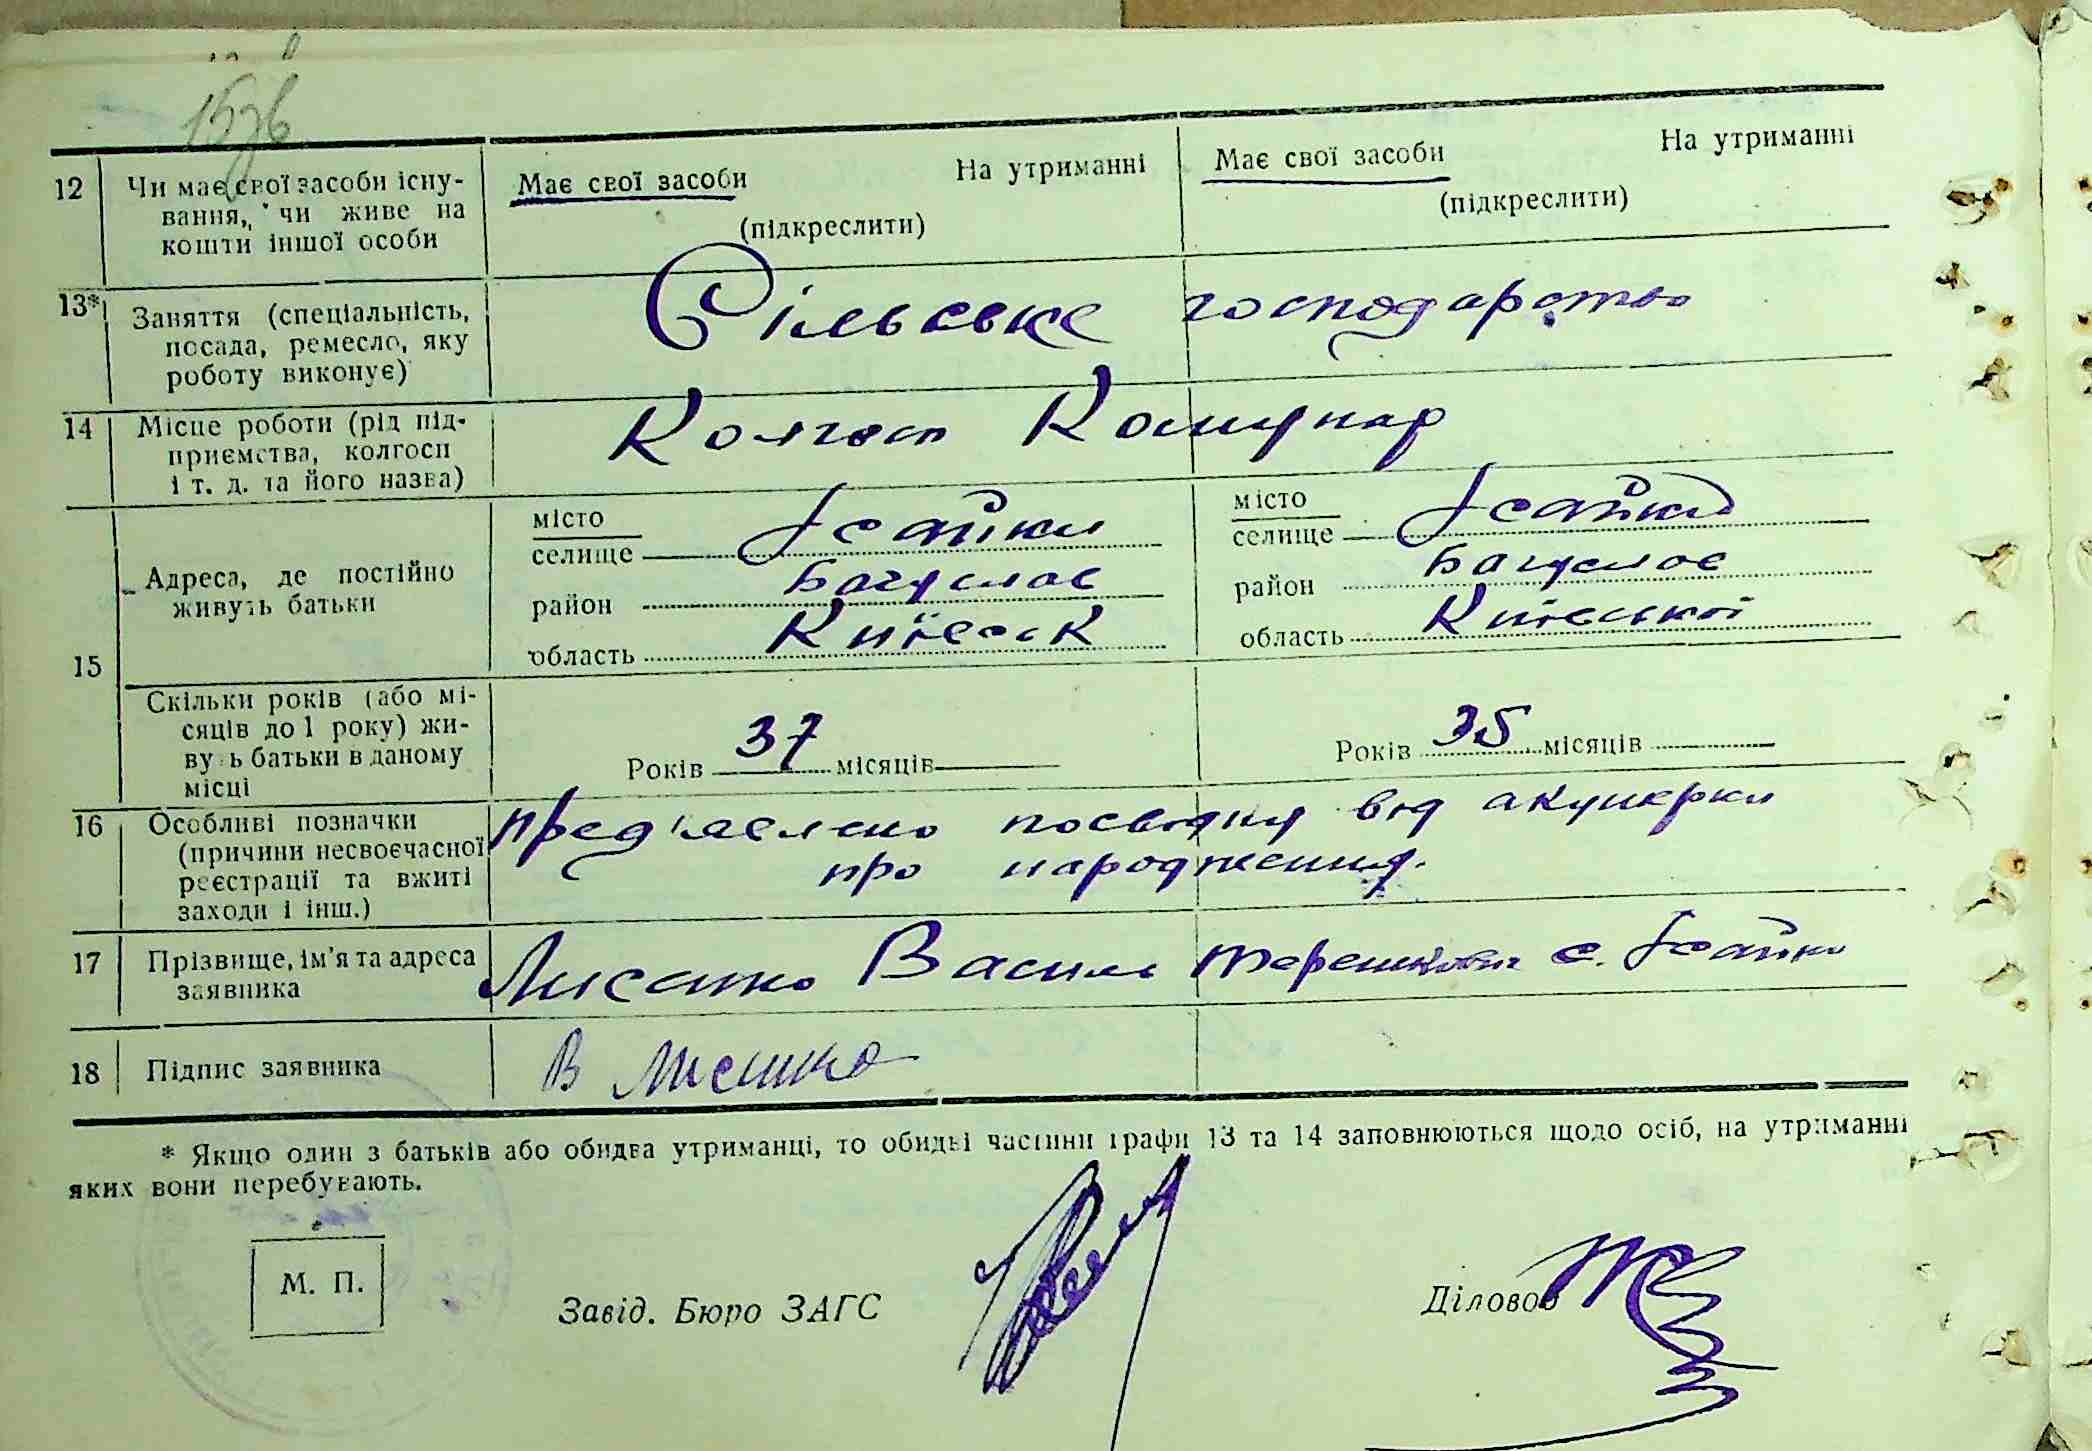 12 Чи має свої засоби існу-
вання, чи живе на
кошти іншої особи
Має свої засоби На утриманні
(підкреслити)
Має свої засоби На утриманні
(підкреслити)
13* Заняття (спеціальність,
посада, ремесло, яку
роботу виконує)
Сільське господарство
14 Місце роботи (рід під-
приємства, колгосп
і т. д. та його назва)
Колгосп Комунар
15
Адреса, де постійно
живуть батьки
місто
селище Ісайки
район Багуслав
область Київськ
місто
селище Ісайки
район Багуслав
область Київської
Скільки років (або мі-
сяців до 1 року) жи-
вуть батьки в даному
місці
Років 37 місяців
Років 35 місяців
16 Особливі позначки
(причини несвоєчасної
реєстрації та вжиті
заходи і інш.)
предіавлено посвідкия від акушерки
про народження.
17 Прізвище, ім'я та адреса
заявника
Лисенко Василь Терешкович с. Ісайки
18 Підпис заявника
В Лисенко
* Якщо один з батьків або обидва утриманці, то обидві частини графи 13 та 14 заповнюються щодо осіб, на утриманні
яких вони перебувають.
М. П.
Завід. Бюро ЗАГС
Діловод